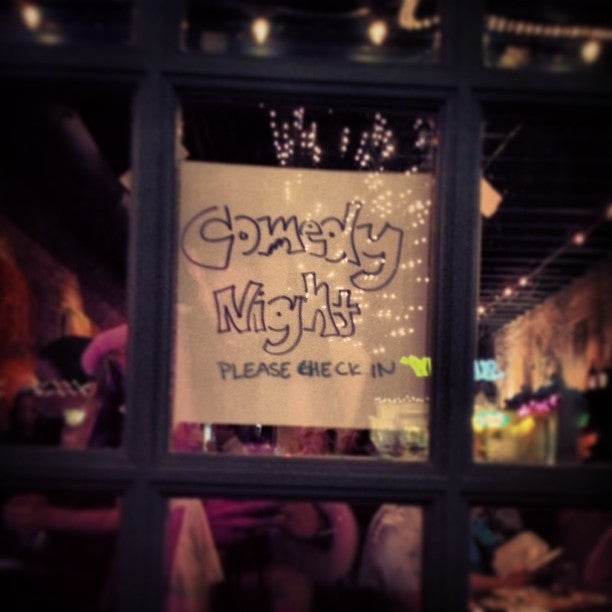 Comedy
Night
PLEASE CHECK IN